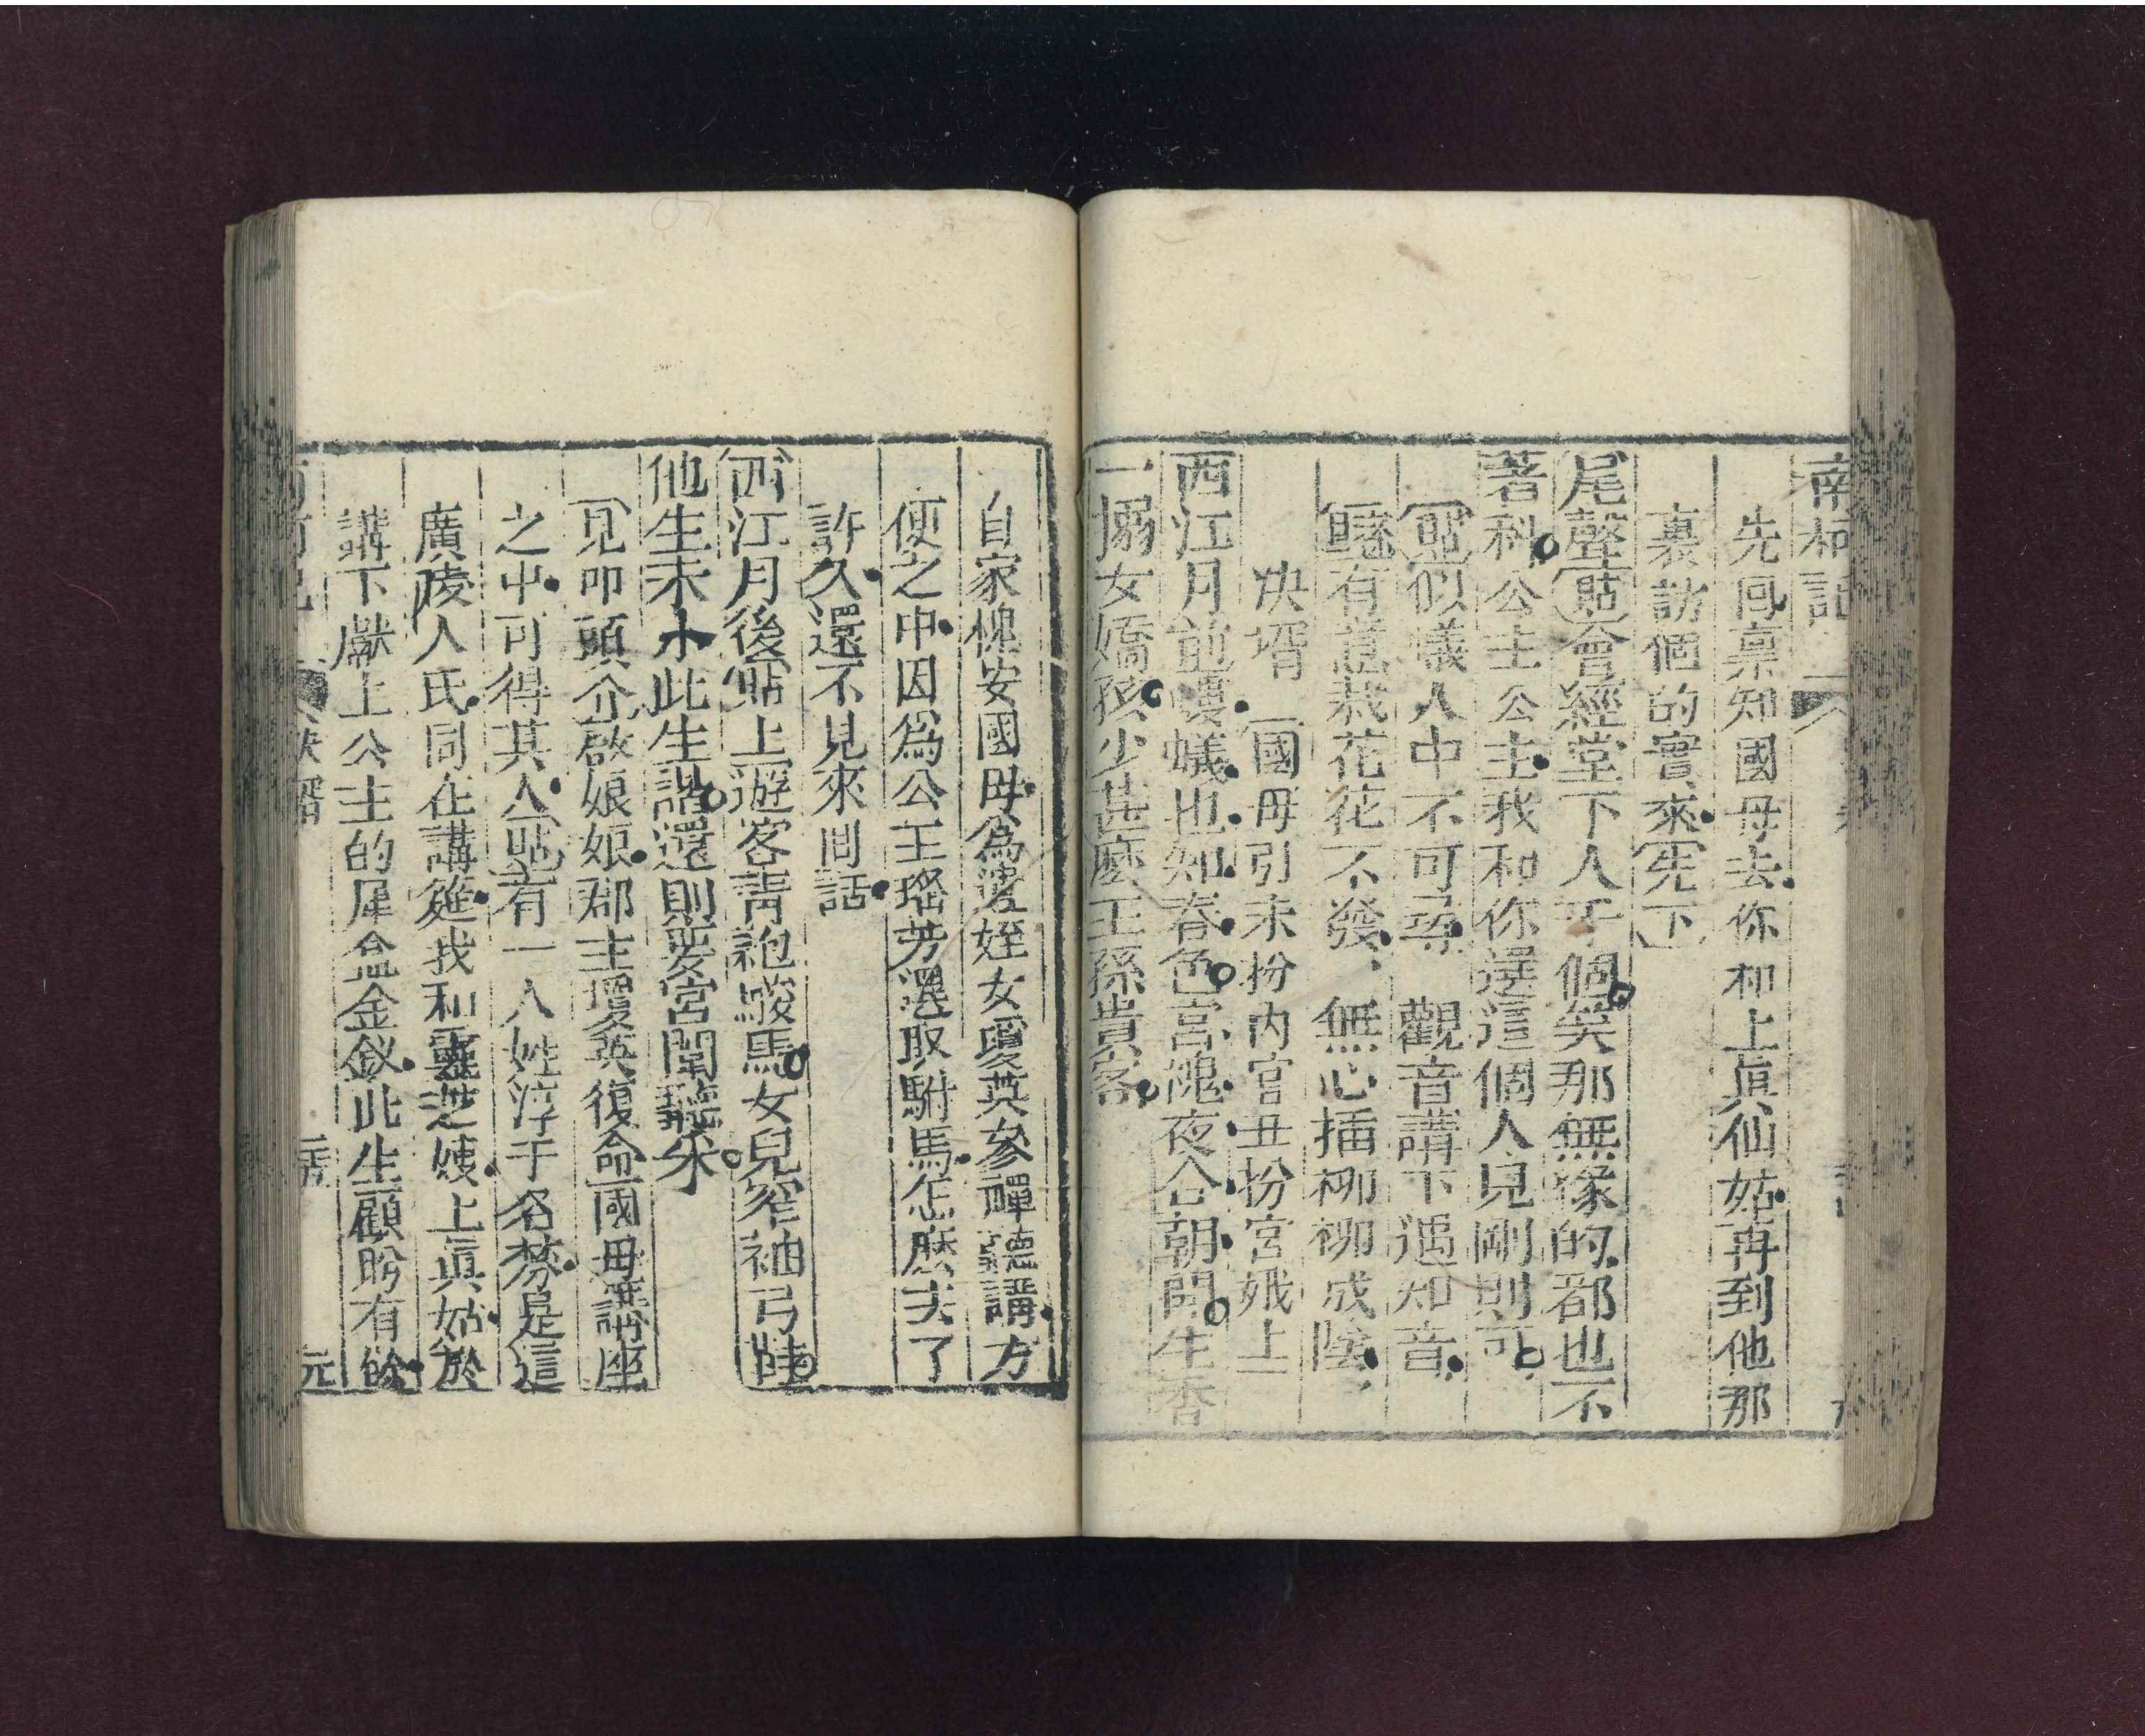 南柯記
先囘稟知國母去你和上眞仙姑再到他那
裏訪個的實來宪下
尾聲貼會經堂下人千個矣那無緣的都也不
著科公主公主我和你選這個人兒剛則可
貼似蟻人中不可尋　觀音講下遇知音
有意栽花花不發　無心插柳柳成陰
決壻　國母引末扮内官丑扮宮娥上
西江月前螻蟻也知春色宮槐夜合朝開生香
一搦女嬌孩少甚麽王孫貴客
自家槐安國母爲遣姪女瓊英參禪聽講方
便之中因爲公主瑤芳選取駙馬怎麽去了
許久還不見來囘話
西江月後貼上遊客青袍駿馬女兒窄袖弓鞋
他生未卜此生諧還則要宮闈聽采
見叩頭介啟娘娘郡主瓊英復命國母講座
之中可得其人貼有一人姓淳于名棼是這
廣陵人氏同在講筵我和靈芝姨上眞姑於
講下獻上公主的犀盒金釵此生顧盼有餘
決壻
元